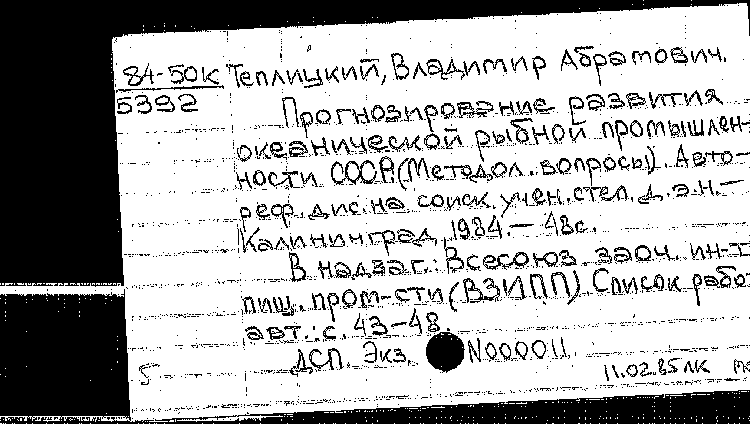 84-50к Теплицкий, Владимир Абрамович.
5392
Прогнозирование развития
океанической рыбной промышлен-
ности СССР (Методол. вопросы). Авто-
реф. дис. на соиск. учен. степ. д. э. н. —
Калининград, 1984. — 48с.
В надзаг.: Всесоюз. заоч. ин-т
пищ. пром-сти (ВЗИПП). Список работ
авт.: с. 43-48.
ДСП. Экз. N000011.
5
11.02.85 ЛК